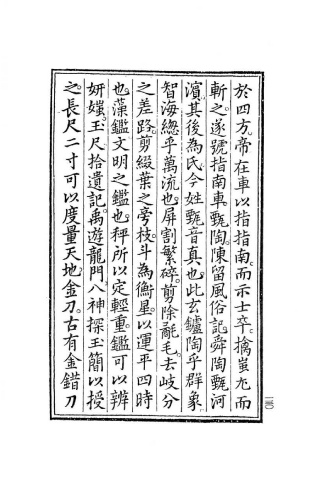 於四方帝在車以指指南。而示士卒。擒蚩尤而
斬之。遂號指南車。甄陶陳留風俗記舜陶甄河
濵。其後為氏今姓甄音真也。此玄鑪陶乎羣象
智海總乎萬流也。屏割繁碎。剪除毳毛去歧分
之差路。剪綴葉之旁枝斗為衡星。以運平四時
也。藻鑑文明之鑑也。秤所以定輕重。鑑可以辨
妍媸。玉尺拾遺記。禹遊龍門。八神探玉簡以授
之。長尺二寸可以度量天地。金刀。古有金錯刀